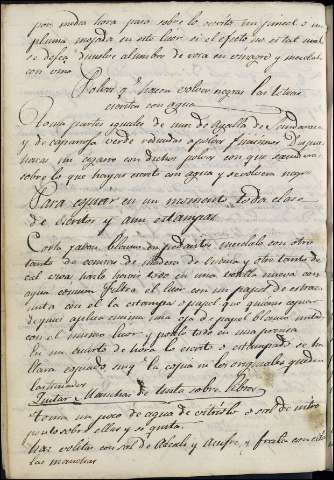 por media hora pasa sobre lo escrito un pincel o una
pluma mojada en este licor si el efecto no es tal cual
se desea disuelve alumbre de roca en vinagre y mezcla
con vino
Polvos q.e hacen volver negras las letras
escritas con agua
Toma partes iguales de nuez de Agalla de
y de caparrosa verde reducidas a polvo finísimos
haras un con dichos polvos con que
sobre lo que hayas escrito con agua y se volvera negro
Para copiar en un momento toda clase
de escritos y aun estampas
Corta jabon blanco en pedacitos mezclalo con otro
tanto de ceniza de madera de encina y otro tanto de
cal viva hazlo hervir todo en una vasija nueva con
agua comun filtra el licor con un papel de estraza
unta con el la estampa o papel que quieras copiar
despues aplica encima una oja de papel blanco untado
con el mismo licor y ponlo todo en una prensa
En un cuarto de hora lo escrito o estampado se ha
llara copiado muy la copia ni los originales quedan
lastimados
Quitar Manchas de tinta sobre libros
Toma un poco de agua de vitriolo o sal de nitro
ponlo sobre ellas y se quita
Haz volitas con sal de Alcali y Azufre, y frota con ellas
las manchas